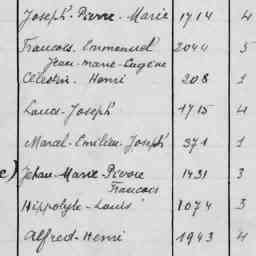 Joseph-Pierre-Marie 1714 4
Francois-Emmanuel 2044 5
Jean-Marie-Eugène
Célestin-Henri 208 1
Louis-Joseph 1715 4
Marcel-Emilien-Joseph 371 1
Jehan-Marie-Pierre 1431 3
Francois
Hippolyte-Louis 1074 3
Alfred-Henri 1943 4